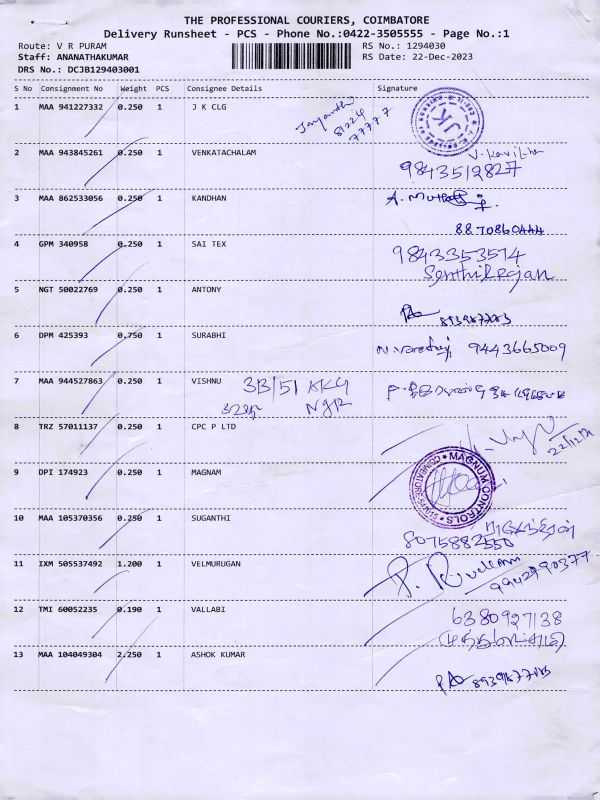 THE PROFESSIONAL COURIERS, COIMBATORE
Delivery Runsheet - PCS - Phone No.:0422-3505555 - Page No.:1
Route: V R PURAM RS No.: 1294030
Staff: ANANATHAKUMAR RS Date: 22-Dec-2023
DRS No.: DCJB129403001
S No Consignment No Weight PCS Consignee Details Signature
1 MAA 941227332 0.250 1 J K CLG 81224 77777 JK
2 MAA 943845261 0.250 1 VENKATACHALAM V. Kavitha
9843512827
3 MAA 862533056 0.250 1 KANDHAN
8870860444
4 GPM 340958 0.250 1 SAI TEX 9843353514
Senthil Rajan
5 NGT 50022769 0.250 1 ANTONY
6 DPM 425393 0.750 1 SURABHI 9443665009
7 MAA 944527863 0.250 1 VISHNU 3B/51 KKG
NGR
8 TRZ 57011137 0.250 1 CPC P LTD
22/12/23
9 DPI 174923 0.250 1 MAGNAM MAGNUM CONTROLS
10 MAA 105370356 0.250 1 SUGANTHI
8075882550
11 IXM 505537492 1.200 1 VELMURUGAN
9942990377
12 TMI 60052235 0.190 1 VALLABI 6380927138
13 MAA 104049304 2.250 1 ASHOK KUMAR